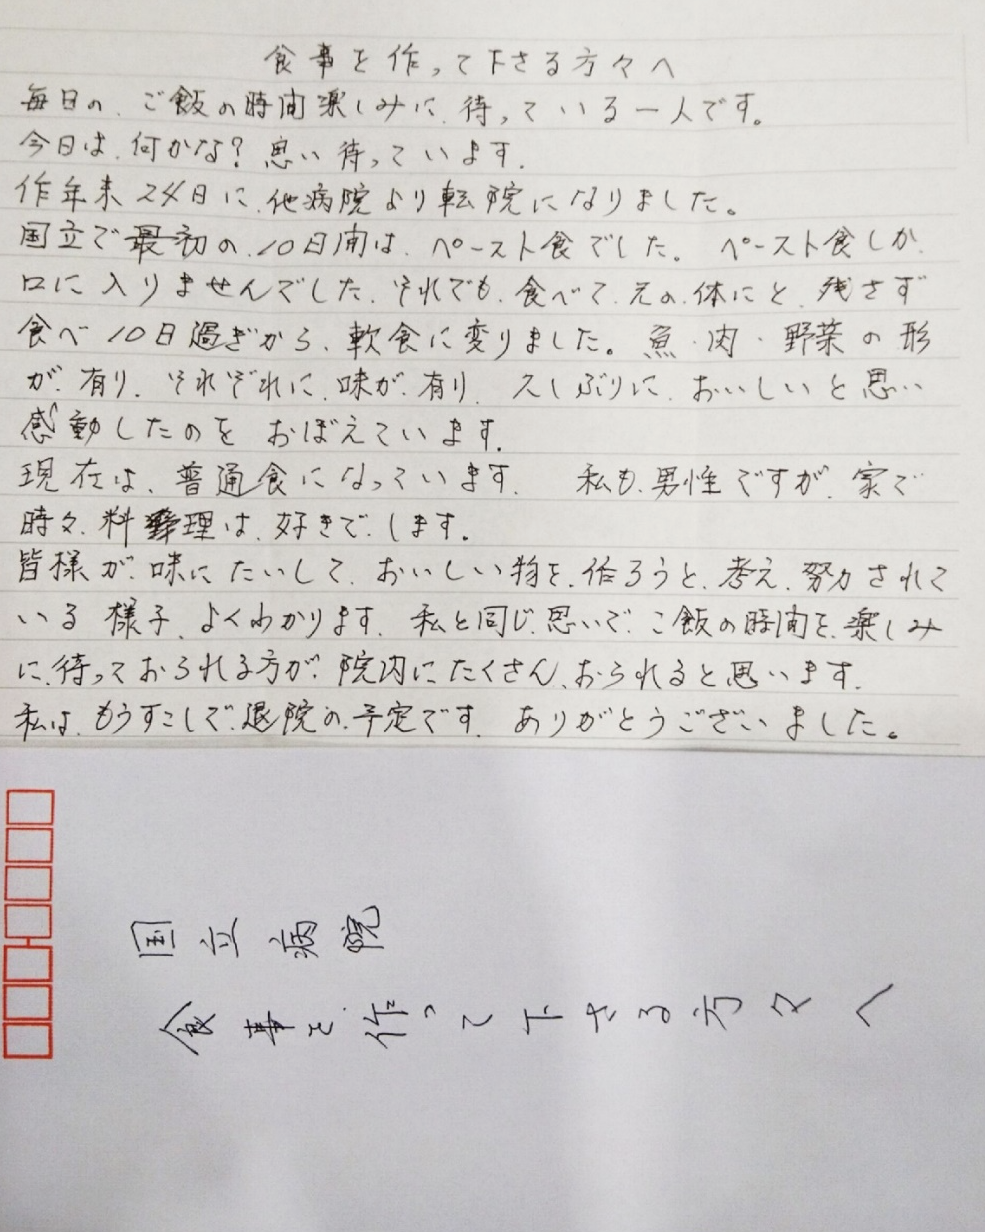 食事を作って下さる方々へ
毎日の、ご飯の時間楽しみに、待っている一人です。
今日は、何かな？思い待っています.
作年末24日に、他病院より転院になりました。
国立で最初の、10日間は、ペースト食でした。ペースト食しか、
口に入りませんでした、それでも、食べて、元の、体にと、残さず
食べ10日過ぎから、軟食に変りました。魚・肉・野菜の形
が、有り、それぞれに、味が、有り、久しぶりに、おいしいと思い
感動したのをおぼえています.
現在は、普通食になっています.私も、男性ですが、家で
時々、料理は、好きで、します。
皆様が、味にたいして、おいしい物を、作ろうと、考え、努力されて
いる様子、よくわかります.私と同じ、思いで、ご飯の時間を、楽しみ
に、待っておられる方が、院内にたくさん、おられると思います.
私は、もうすこしで、退院の、予定です.ありがとうございました。
国立病院
食事を、作って下さる方々へ